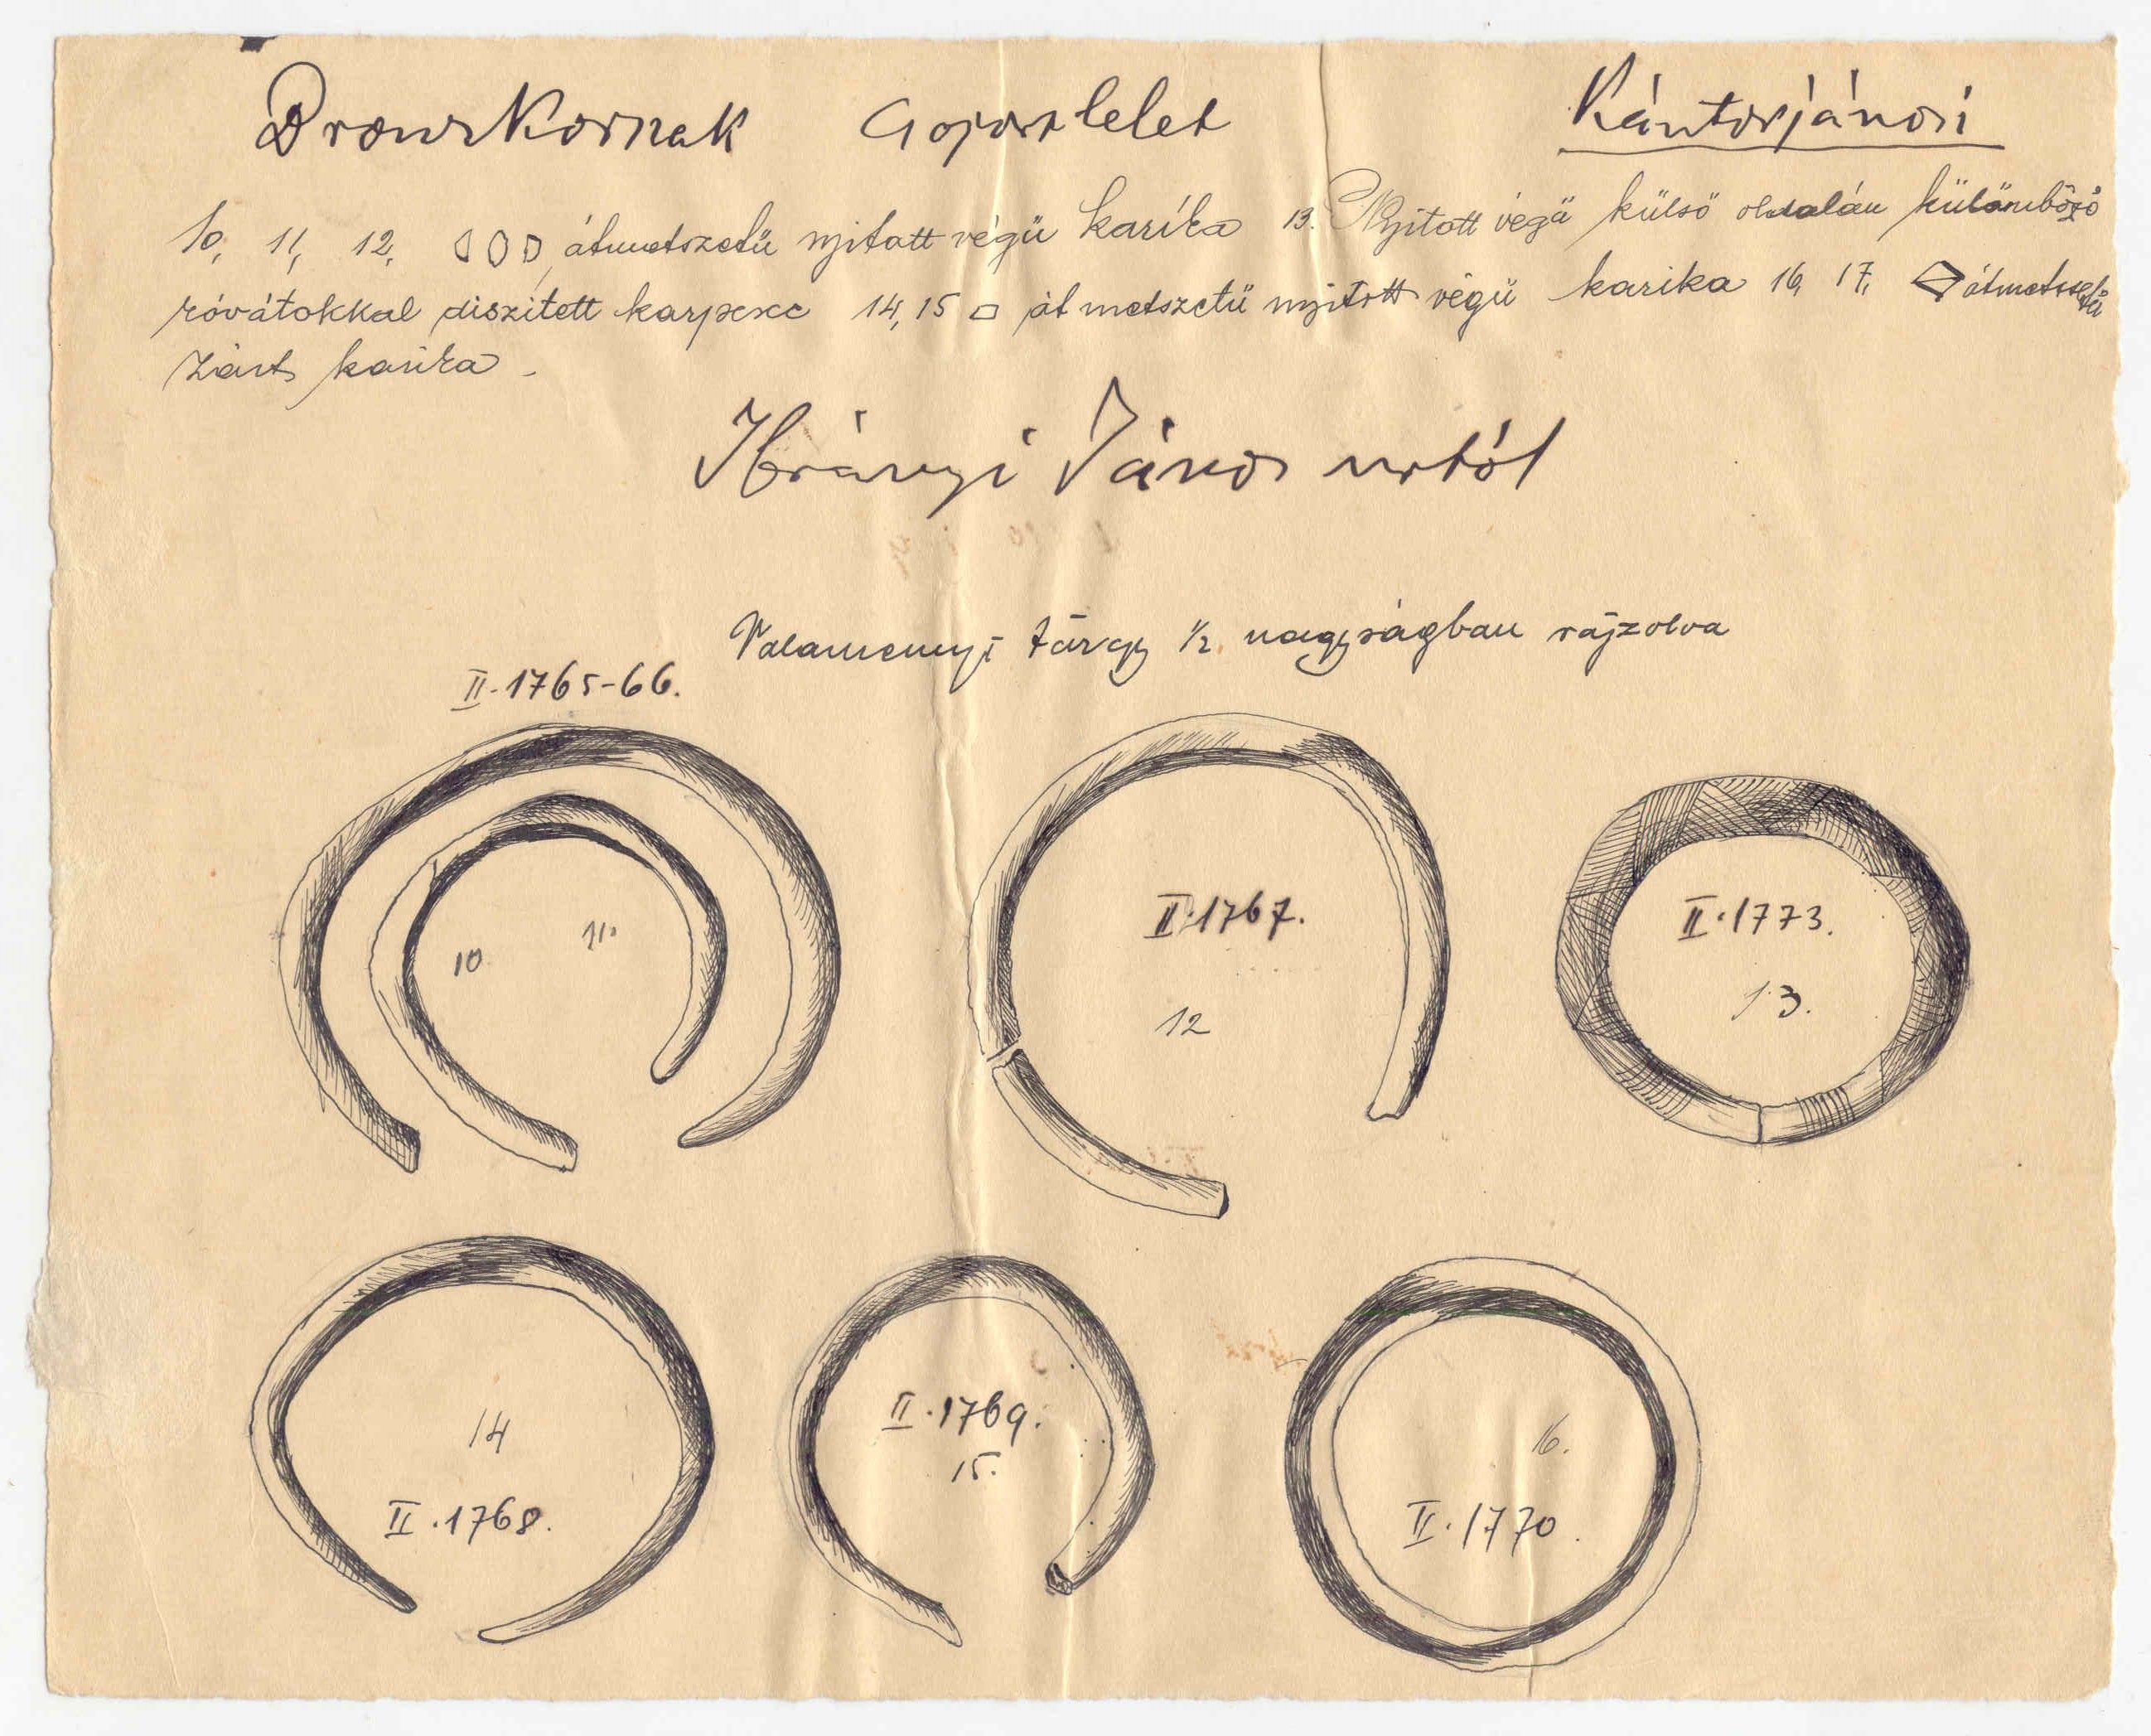 Bronzkornak Csoportlelet Kántorjánosi
10, 11, 12, átmetszetü nyitott végü karika 13. Nyitott végü külső oldalán külömböző
róvátokkal diszitett karperec 14, 15 □ átmetszetü nyitott végü karika 16, 17, átmetszetü
zárt karika.
Ibrányi János urtól
Valamennyi tárgy 1/2 nagyságban rajzolva
II.1765-66.
10
11.
II.1767.
12
II.1773.
13.
14
II.1768.
II.1769.
15.
16.
II.1770.